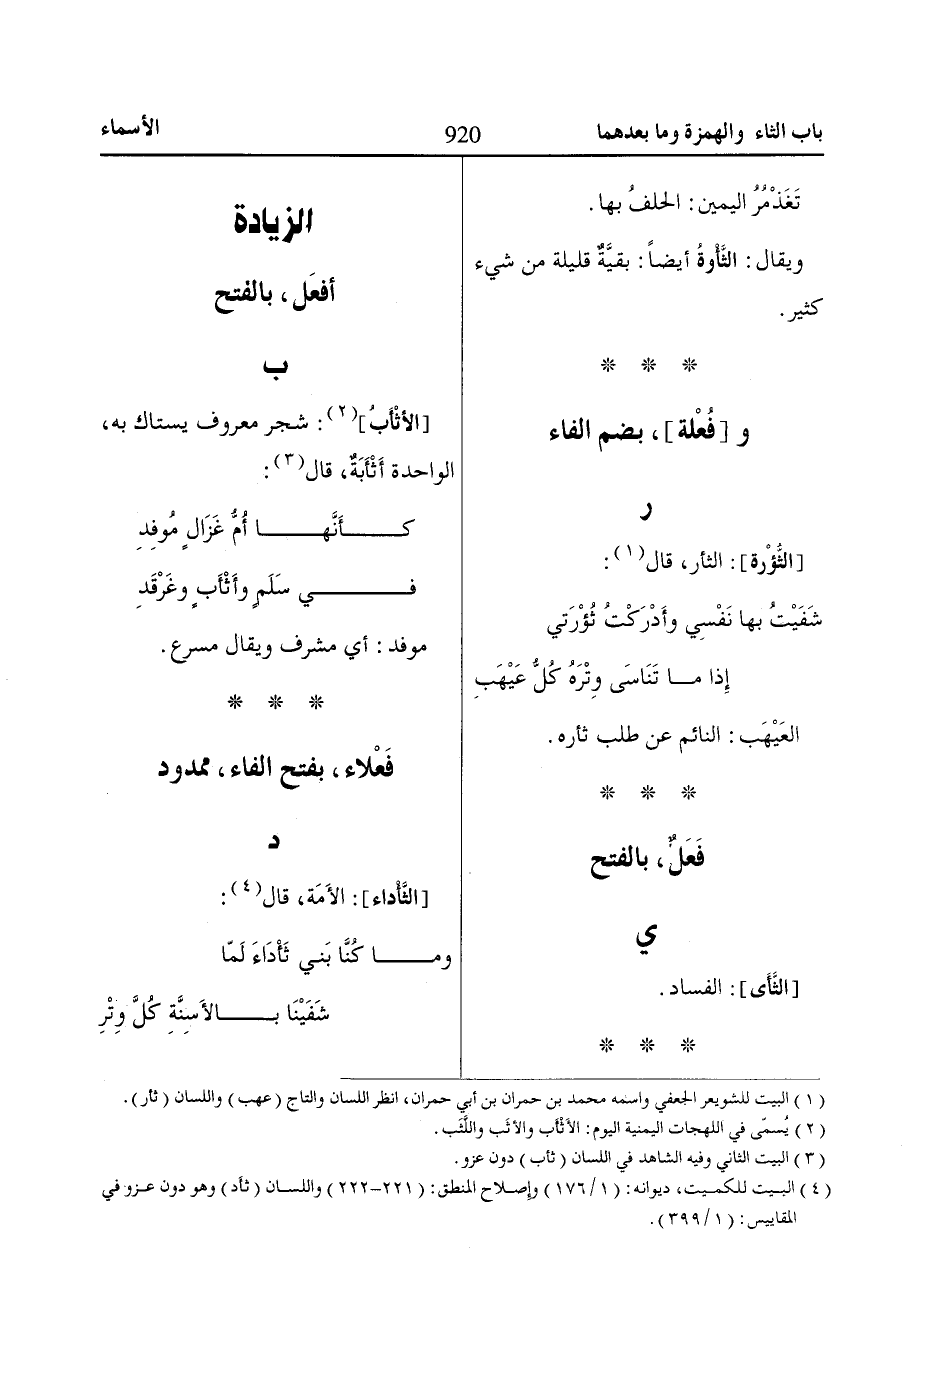 باب الثاء والهمزة وما بعدهما 920 الأسماء
تَغَذْمُرُ اليمين: الحلفُ بها.
ويقال: الثَّأْوةُ أيضاً: بقيَّةٌ قليلة من شيء
كثير.
* * *
و [فُعْلة]، بضم الفاء
ر
[الثُّؤْرة]: الثأر، قال(١):
شَفَيْتُ بها نَفْسي وأدْرَكْتُ ثُؤْرَتي
إذا مــا تَنَاسَى وِتْرَهُ كُلُّ عَيْهَبِ
العَيْهَب: النائم عن طلب ثأره.
* * *
فَعَلٌ، بالفتح
ي
[الثَّأَى]: الفساد.
* * *
الزيادة
أفعَل، بالفتح
ب
[الأثْأَبُ](٢): شجر معروف يستاك به،
الواحدة أَثْأَبَةٌ، قال(٣):
كــــأنَّهــــا أُمُّ غَزَالٍ مُوفِدِ
فــــي سَلَمٍ وأَثْأَبٍ وغَرْقَدِ
موفد: أي مشرف ويقال مسرع.
* * *
فَعْلاء، بفتح الفاء، ممدود
د
[الثَّأْداء]: الأمَة، قال(٤):
ومــــا كُنَّا بَني ثَأْدَاءَ لَمّا
شَفَيْنَا بــــالأَسِنَّةِ كُلَّ وِتْرِ
(١) البيت للشويعر الجعفي واسمه محمد بن حمران بن أبي حمران، انظر اللسان والتاج (عهب) واللسان (ثأر).
(٢) يُسمّى في اللهجات اليمنية اليوم: الأَثْأَب والأثَب واللَّثَب.
(٣) البيت الثاني وفيه الشاهد في اللسان (ثأب) دون عزو.
(٤) البيت للكميت، ديوانه: (١/١٧٦) وإصلاح المنطق: (٢٢١-٢٢٢) واللسان (ثأد) وهو دون عزو في
المقاييس: (١/٣٩٩).